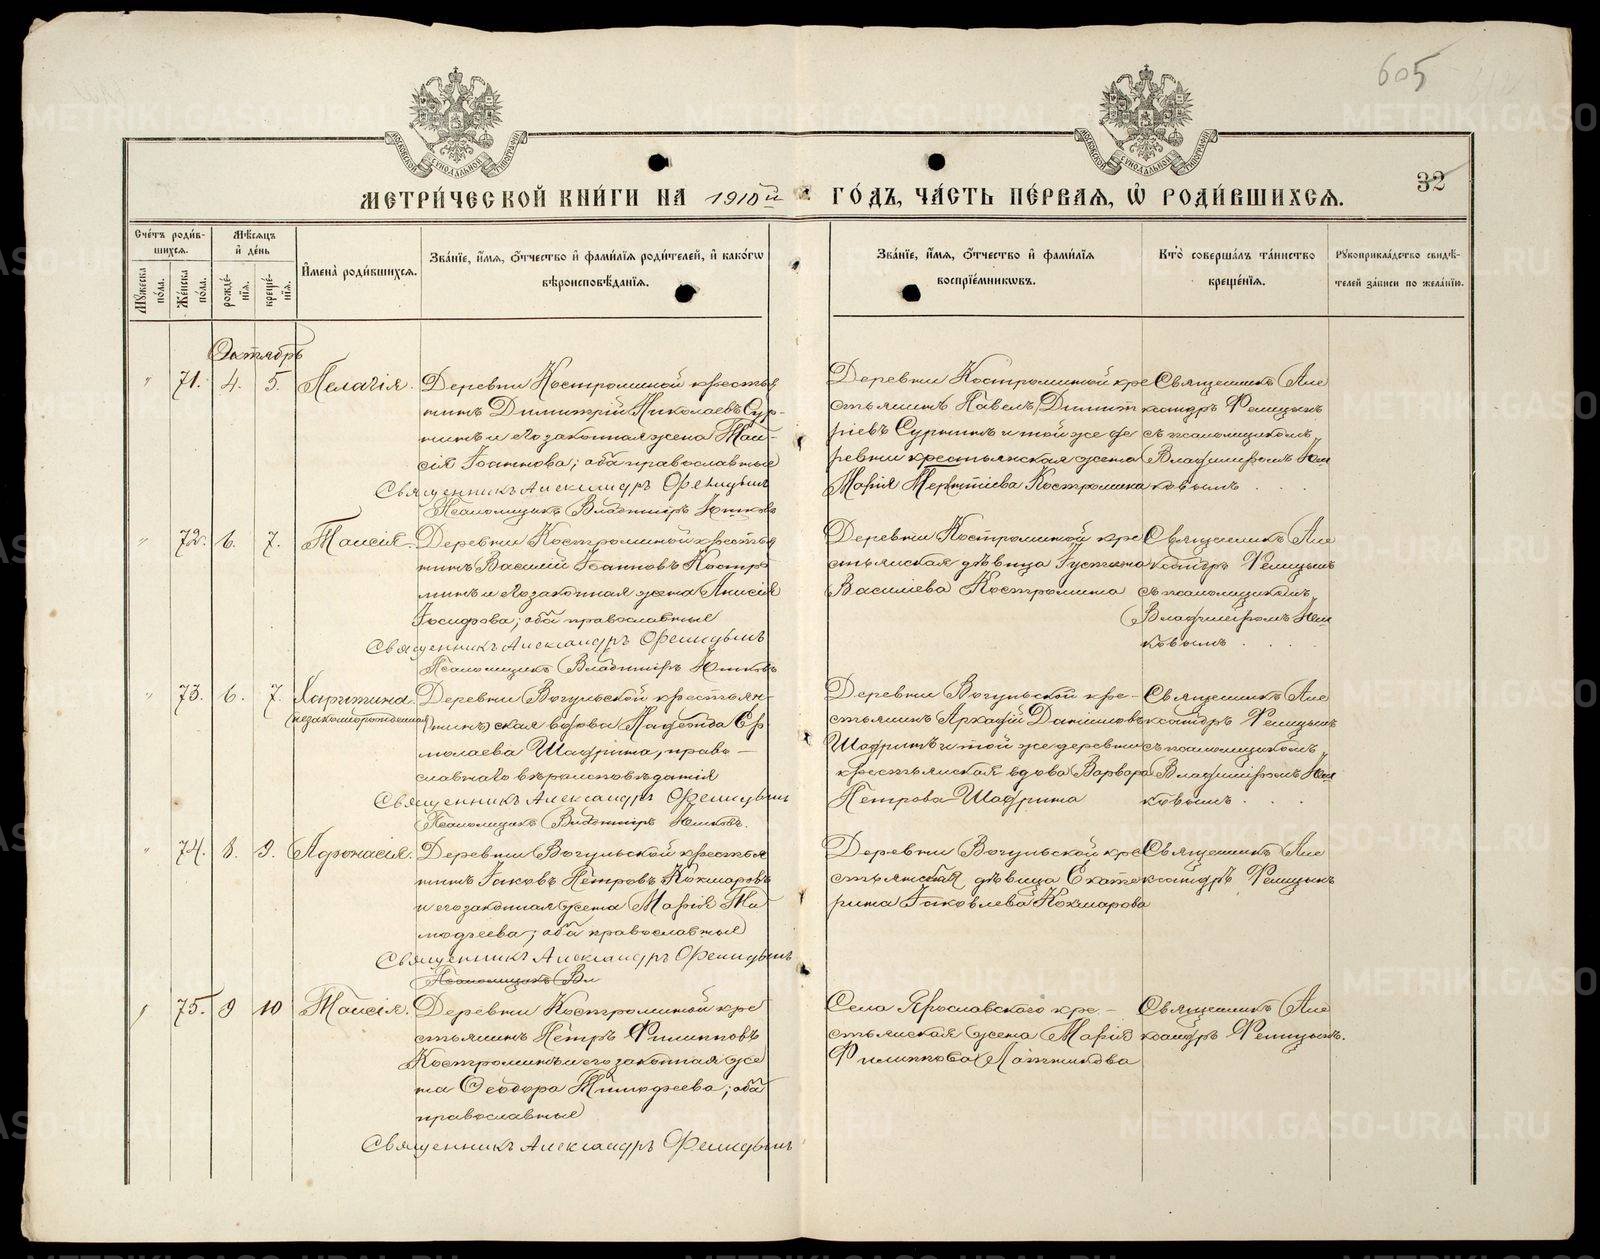 605
32
МЕТРИ́ЧЕСКОЙ КНИ́ГИ НА 1910й ГО́ДЪ, ЧА́СТЬ ПЕ́РВАЯ, Ѡ҆ РОДИ́ВШИХСЯ.
Сче́тъ роди́в-
шихся.
Мꙋ́жеска по́ла.
Же́нска по́ла.
Мѣ́сяцъ
и҆ де́нь
рожде́-
нїя.
креще́-
нїя.
И҆мена̀ роди́вшихся.
Зва́нїе, и҆́мя, ѻ҆́тчество и҆ фами́лїя роди́телей, и҆ како́гѡ
вѣроисповѣ́данїя.
Зва́нїе, и҆́мя, ѻ҆́тчество и҆ фами́лїя
воспрїе́мникѡвъ.
Кто̀ соверша́лъ та́инство
креще́нїя.
Рꙋкоприкла́дство свидѣ́-
телей за́писи по жела́нїю.
Октябрь
" 71. 4. 5. Пелагія.
Деревни Костроминой крестья
нинъ Димитрій Николаевъ Сур-
нинъ и его законная жена Таи-
сія Іоаннова; оба православные
Священникъ Александръ Фелицынъ
Псаломщикъ Владиміръ
Деревни Костроминой кре
стьянинъ Павелъ Димит
ріевъ Сурнинъ и той же де
ревни крестьянская жена
Марія Костромина
Священникъ Але
ксандръ Фелицынъ
съ псаломщикомъ
Владиміромъ
ковымъ . . .
" 72. 6. 7. Таисія.
Деревни Костроминой крестья
нинъ Василій Іоанновъ Костро
минъ и его законная жена Анисія
Іосифова; оба православные
Священникъ Александръ Фелицынъ
Псаломщикъ Владиміръ
Деревни Костроминой кре
стьянская дѣвица Іустина
Василіева Костромина
Священникъ Але
ксандръ Фелицынъ
съ псаломщикомъ
Владиміромъ
ковымъ . . .
" 73. 6. 7. Харитина
(незаконнорожденная)
Деревни Вогульской крестьян-
ская вдова Надежда Ер
молаева Шадрина, право-
славнаго вѣроисповѣданія
Священникъ Александръ Фелицынъ
Псаломщикъ Владиміръ
Деревни Вогульской кре-
стьянинъ Аркадій Даніиловъ
Шадринъ и той же деревни
крестьянская вдова Варвара
Петрова Шадрина
Священникъ Але
ксандръ Фелицынъ
съ псаломщикомъ
Владиміромъ
ковымъ . . .
" 74. 8. 9. Афонасія.
Деревни Вогульской крестья
нинъ Іаковъ Петровъ Кокшаровъ
и его законная жена Марія Ти
мофеева; оба православные
Священникъ Александръ Фелицынъ
Псаломщикъ Вл
Деревни Вогульской кре
стьянская дѣвица Екате
рина Іаковлева Кокшарова
Священникъ Але
ксандръ Фелицынъ
75. 9 10 Таисія.
Деревни Костроминой кре
стьянинъ Петръ Филипповъ
Костроминъ и его законная же
на Ѳеодора Тимофеева; оба
православные
Священникъ Александръ Фелицынъ
Села Ярославского кре-
стьянская жена Марія
Филиппова Латникова
Священникъ Але
ксандръ Фелицынъ.